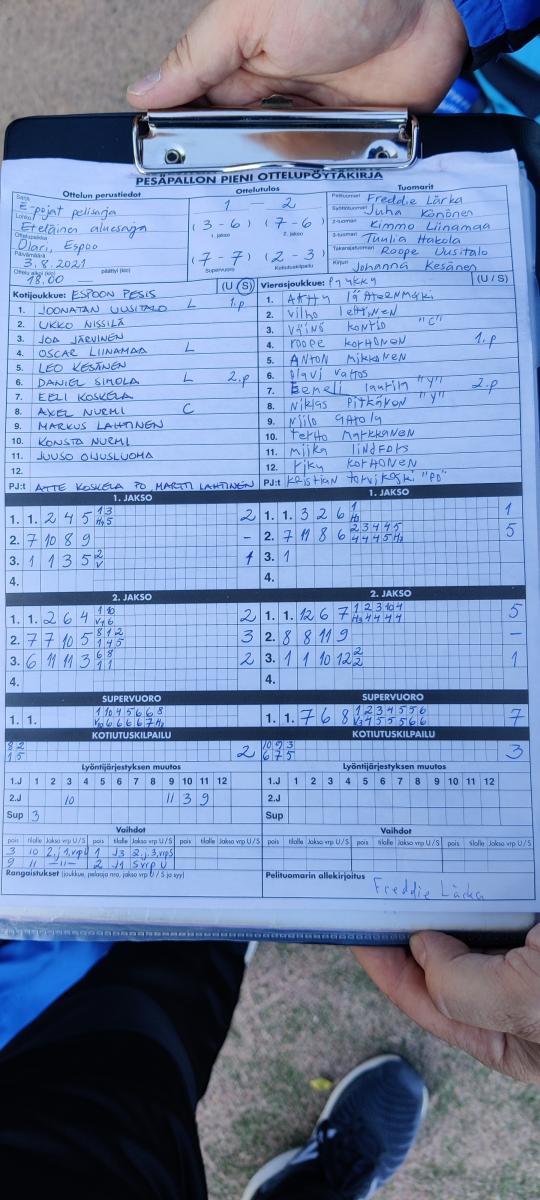 PESÄPALLON PIENI OTTELUPÖYTÄKIRJA
Ottelun perustiedot
Sarja E-pojat pelisarja
Lohko Eteläinen aluesarja
Ottelupaikka Olari, Espoo
Päivämäärä 3.8.2021
Ottelu alkoi (klo) 18.00 päättyi (klo) —
Ottelutulos
1 — 2
(3 - 6) (7 - 6)
1. jakso 2. jakso
(7 - 7) (2 - 3)
Supervuoro Kotiutuskilpailu
Tuomarit
Pelituomari Freddie Lärka
Syöttötuomari Juha Könönen
2-tuomari Kimmo Liinamaa
3-tuomari Tuulia Hakola
Takarajatuomari Roope Uusitalo
Kirjuri Johanna Kesänen
Kotijoukkue: ESPOON PESIS (U / S)
1. JOONATAN UUSITALO L 1.p
2. UKKO NISSILÄ
3. JOA JÄRVINEN
4. OSCAR LIINAMAA L
5. LEO KESÄNEN
6. DANIEL SIMOLA L 2.p
7. EELI KOSKELA
8. AXEL NURMI C
9. MARKUS LAHTINEN
10. KONSTA NURMI
11. JUUSO OIJUSLUOMA
12.
PJ:t ATTE KOSKELA PO MARTTI LAHTINEN
Vierasjoukkue: Puykky (U / S)
1.
2. Vilho lehtinen
3. Väinö kontio "C"
4. roope korhonen 1.p
5. Anton mikkonen
6. Olavi
7. Eemeli "V" 2.p
8. Niklas Pitkänen "V"
9. Niilo
10. terho markkanen
11. miika lindfors
12. korhonen
PJ:t kristian "PO"
1. JAKSO
1. 1. 2 4 5 2
2. 7 10 8 9 -
3. 1 1 3 5 1
4.
1. JAKSO
1. 1. 3 2 6 1
2. 7 11 8 6 5
3. 1
4.
2. JAKSO
1. 1. 2 6 4 2
2. 7 7 10 5 3
3. 6 11 11 3 2
4.
2. JAKSO
1. 1. 12 6 7 5
2. 8 8 11 9 -
3. 1 1 10 12 1
4.
SUPERVUORO
1. 1.
SUPERVUORO
1. 1. 7 6 8 7
KOTIUTUSKILPAILU
8 2
1 5 2
KOTIUTUSKILPAILU
10 9 3
6 7 5 3
Lyöntijärjestyksen muutos
1.J 1 2 3 4 5 6 7 8 9 10 11 12
2.J 10 11 3 9
Sup 3
Lyöntijärjestyksen muutos
1.J 1 2 3 4 5 6 7 8 9 10 11 12
2.J
Sup
Vaihdot
pois tilalle Jakso vrp U/S pois tilalle Jakso vrp U/S pois tilalle Jakso vrp U/S
3 10 2.j 1.vrp U 1 13 2.j 3.vrp S
9 11 —11— 2 11 S vrp U
Vaihdot
pois tilalle Jakso vrp U/S pois tilalle Jakso vrp U/S pois tilalle Jakso vrp U/S
Rangaistukset (joukkue, pelaaja nro, jakso vrp U/S ja syy)
Pelituomarin allekirjoitus
Freddie Lärka